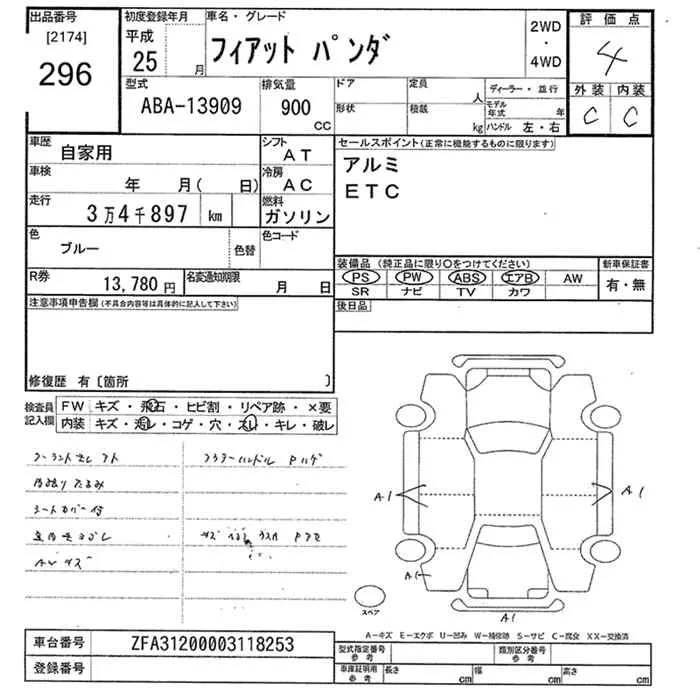 出品番号
[2174]
296
初度登録年月
平成
25
月
車名・グレード
フィアット パンダ
2WD
・
4WD
評価点
4
外装 内装
C C
型式
ABA-13909
排気量
900
CC
ドア
定員
人
形状
積載
kg
ディーラー・並行
モデル
年式 年
ハンドル 左・右
車歴
自家用
シフト
AT
車検
年 月( 日)
冷房
AC
走行
3万4千897 km
燃料
ガソリン
色
ブルー
色替
色コード
R券
13,780 円
名変通知期限
月 日
セールスポイント(正常に機能するものに限ります)
アルミ
ETC
装備品 (純正品に限り○をつけてください)
PS PW ABS エアB AW
SR ナビ TV カワ
新車保証書
有・無
後日品
注意事項申告欄(不具合内容等は具体的に記入して下さい)
修復歴 有〔箇所 〕
検査員
記入欄
FW キズ・飛石・ヒビ割・リペア跡・×要
内装 キズ・汚レ・コゲ・穴・スレ・キレ・破レ
シートカバー付
A1
A1
A1
A1
スペア
A-キズ E-エクボ U-凹み W-補修跡 S-サビ C-腐食 XX-交換済
車台番号
ZFA31200003118253
登録番号
型式指定番号
参考
類別区分番号
参考
車庫証明用
参考
長さ cm
幅 cm
高さ cm